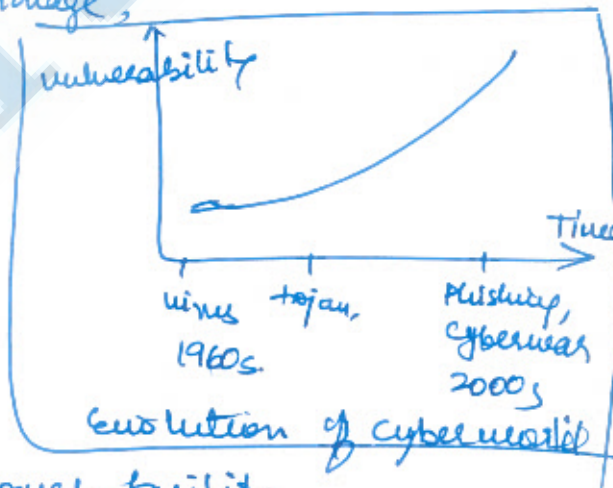 vulnerability
Time
virus trojan, Phishing,
1960s. cyberwar
2000s
Evolution of cyberworld